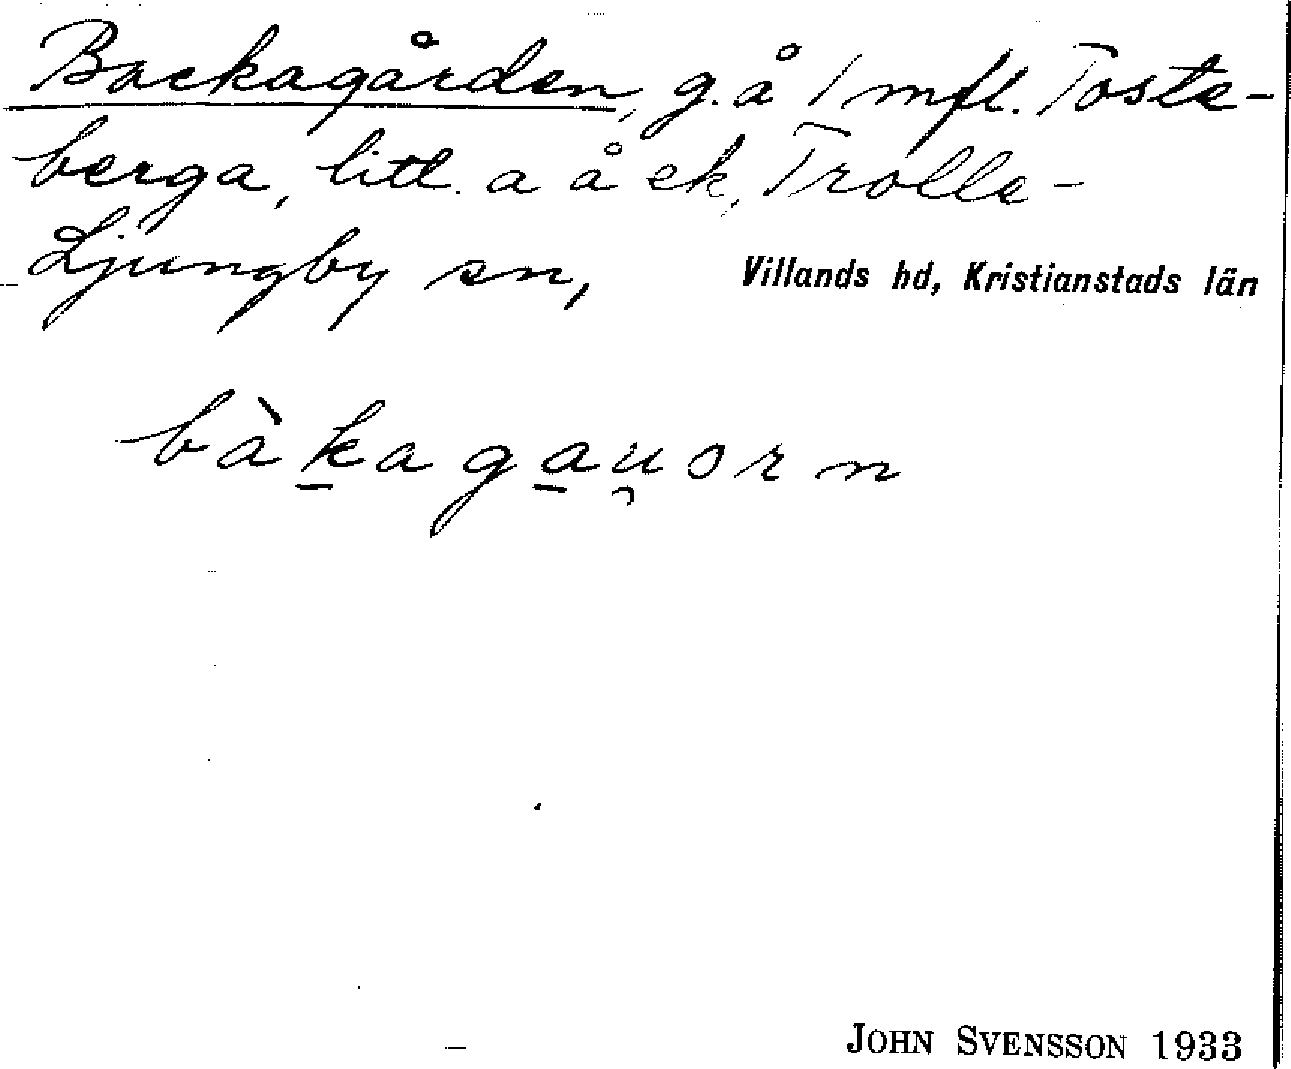 Backagården, g. å 1 mfl. Toste-
berga, litt. a å ek, Trolle-
Ljungby sn, Villands hd, Kristianstads län
bàk̲aga̲u̯orn
JOHN SVENSSON 1933